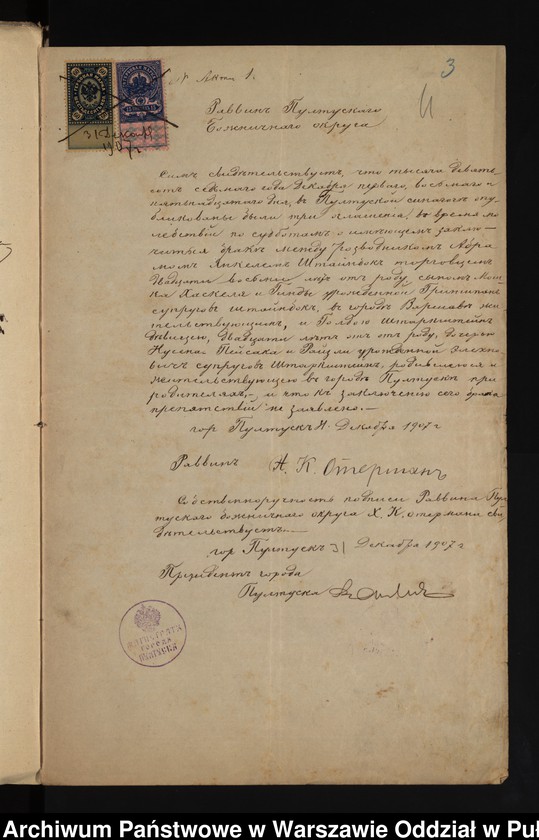 3
N Акта 1.
Раввинъ Пултускаго
Божничнаго округа
31 Декабря
1907 г.
Симъ свидѣтельствуетъ, что тысяча девять
сотъ седьмого года Декабря перваго, восьмого и
пятьнадцатаго дня, въ Пултуской синагогѣ опу
бликованы были три оглашенія, во время мо
лебствій по субботамъ о имѣющемъ заклю-
читься бракѣ между разводникомъ Абра
момъ Янкелемъ Штайнбокъ торговцемъ
двадцати восьми лѣтъ отъ роду, сыномъ
Хаскеля и Гинды урожденной
супруговъ Штайнбокъ, въ городѣ Варшавѣ жи
тельствующимъ, и Голдою Штаркштейнъ
дѣвицею, двадцати лѣтъ отъ роду, дочерью
Пейсаха и Райзли урожденной
супруговъ Штаркштейнъ, родившеюся и
жительствующею въ городѣ Пултускѣ при
родителяхъ,- и что къ заключенію сего брака
препятствій не заявлено.-
гор Пултускъ Декабря 1907 г
Раввинъ Х. К. Отерманъ
Собственноручность подписи Раввина Пул
тускаго божничнаго округа Х. К. Отермана сви
дѣтельствуетъ.-
гор Пултускъ 31 Декабря 1907 г
Президентъ города
Пултуска
МАГИСТРАТЪ
ГОРОДА
ПУЛТУСКА
Archiwum Państwowe w Warszawie Oddział w Puł